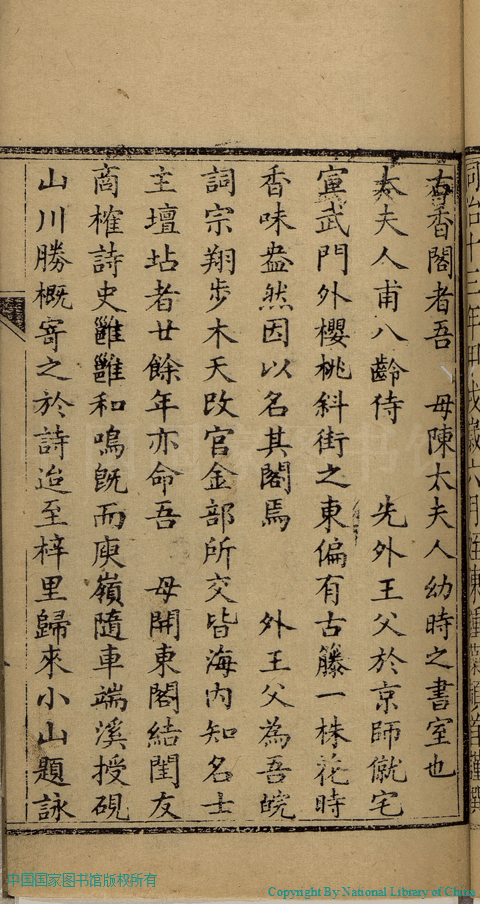 古香閣者吾　母陳太夫人幼時之書室也
太夫人甫八齡侍　　先外王父於京師僦宅
宣武門外櫻桃斜街之東偏有古籐一株花時
香味盎然因以名其閣焉　　外王父為吾皖
詞宗翔步木天改官金部所交皆海內知名士
主壇坫者廿餘年亦命吾　母開東閣結閨友
商榷詩史雝雝和鳴既而庾嶺隨車端溪授硯
山川勝概寄之於詩迨至梓里歸來小山題詠
中国国家图书馆版权所有
Copyright By National Library of China